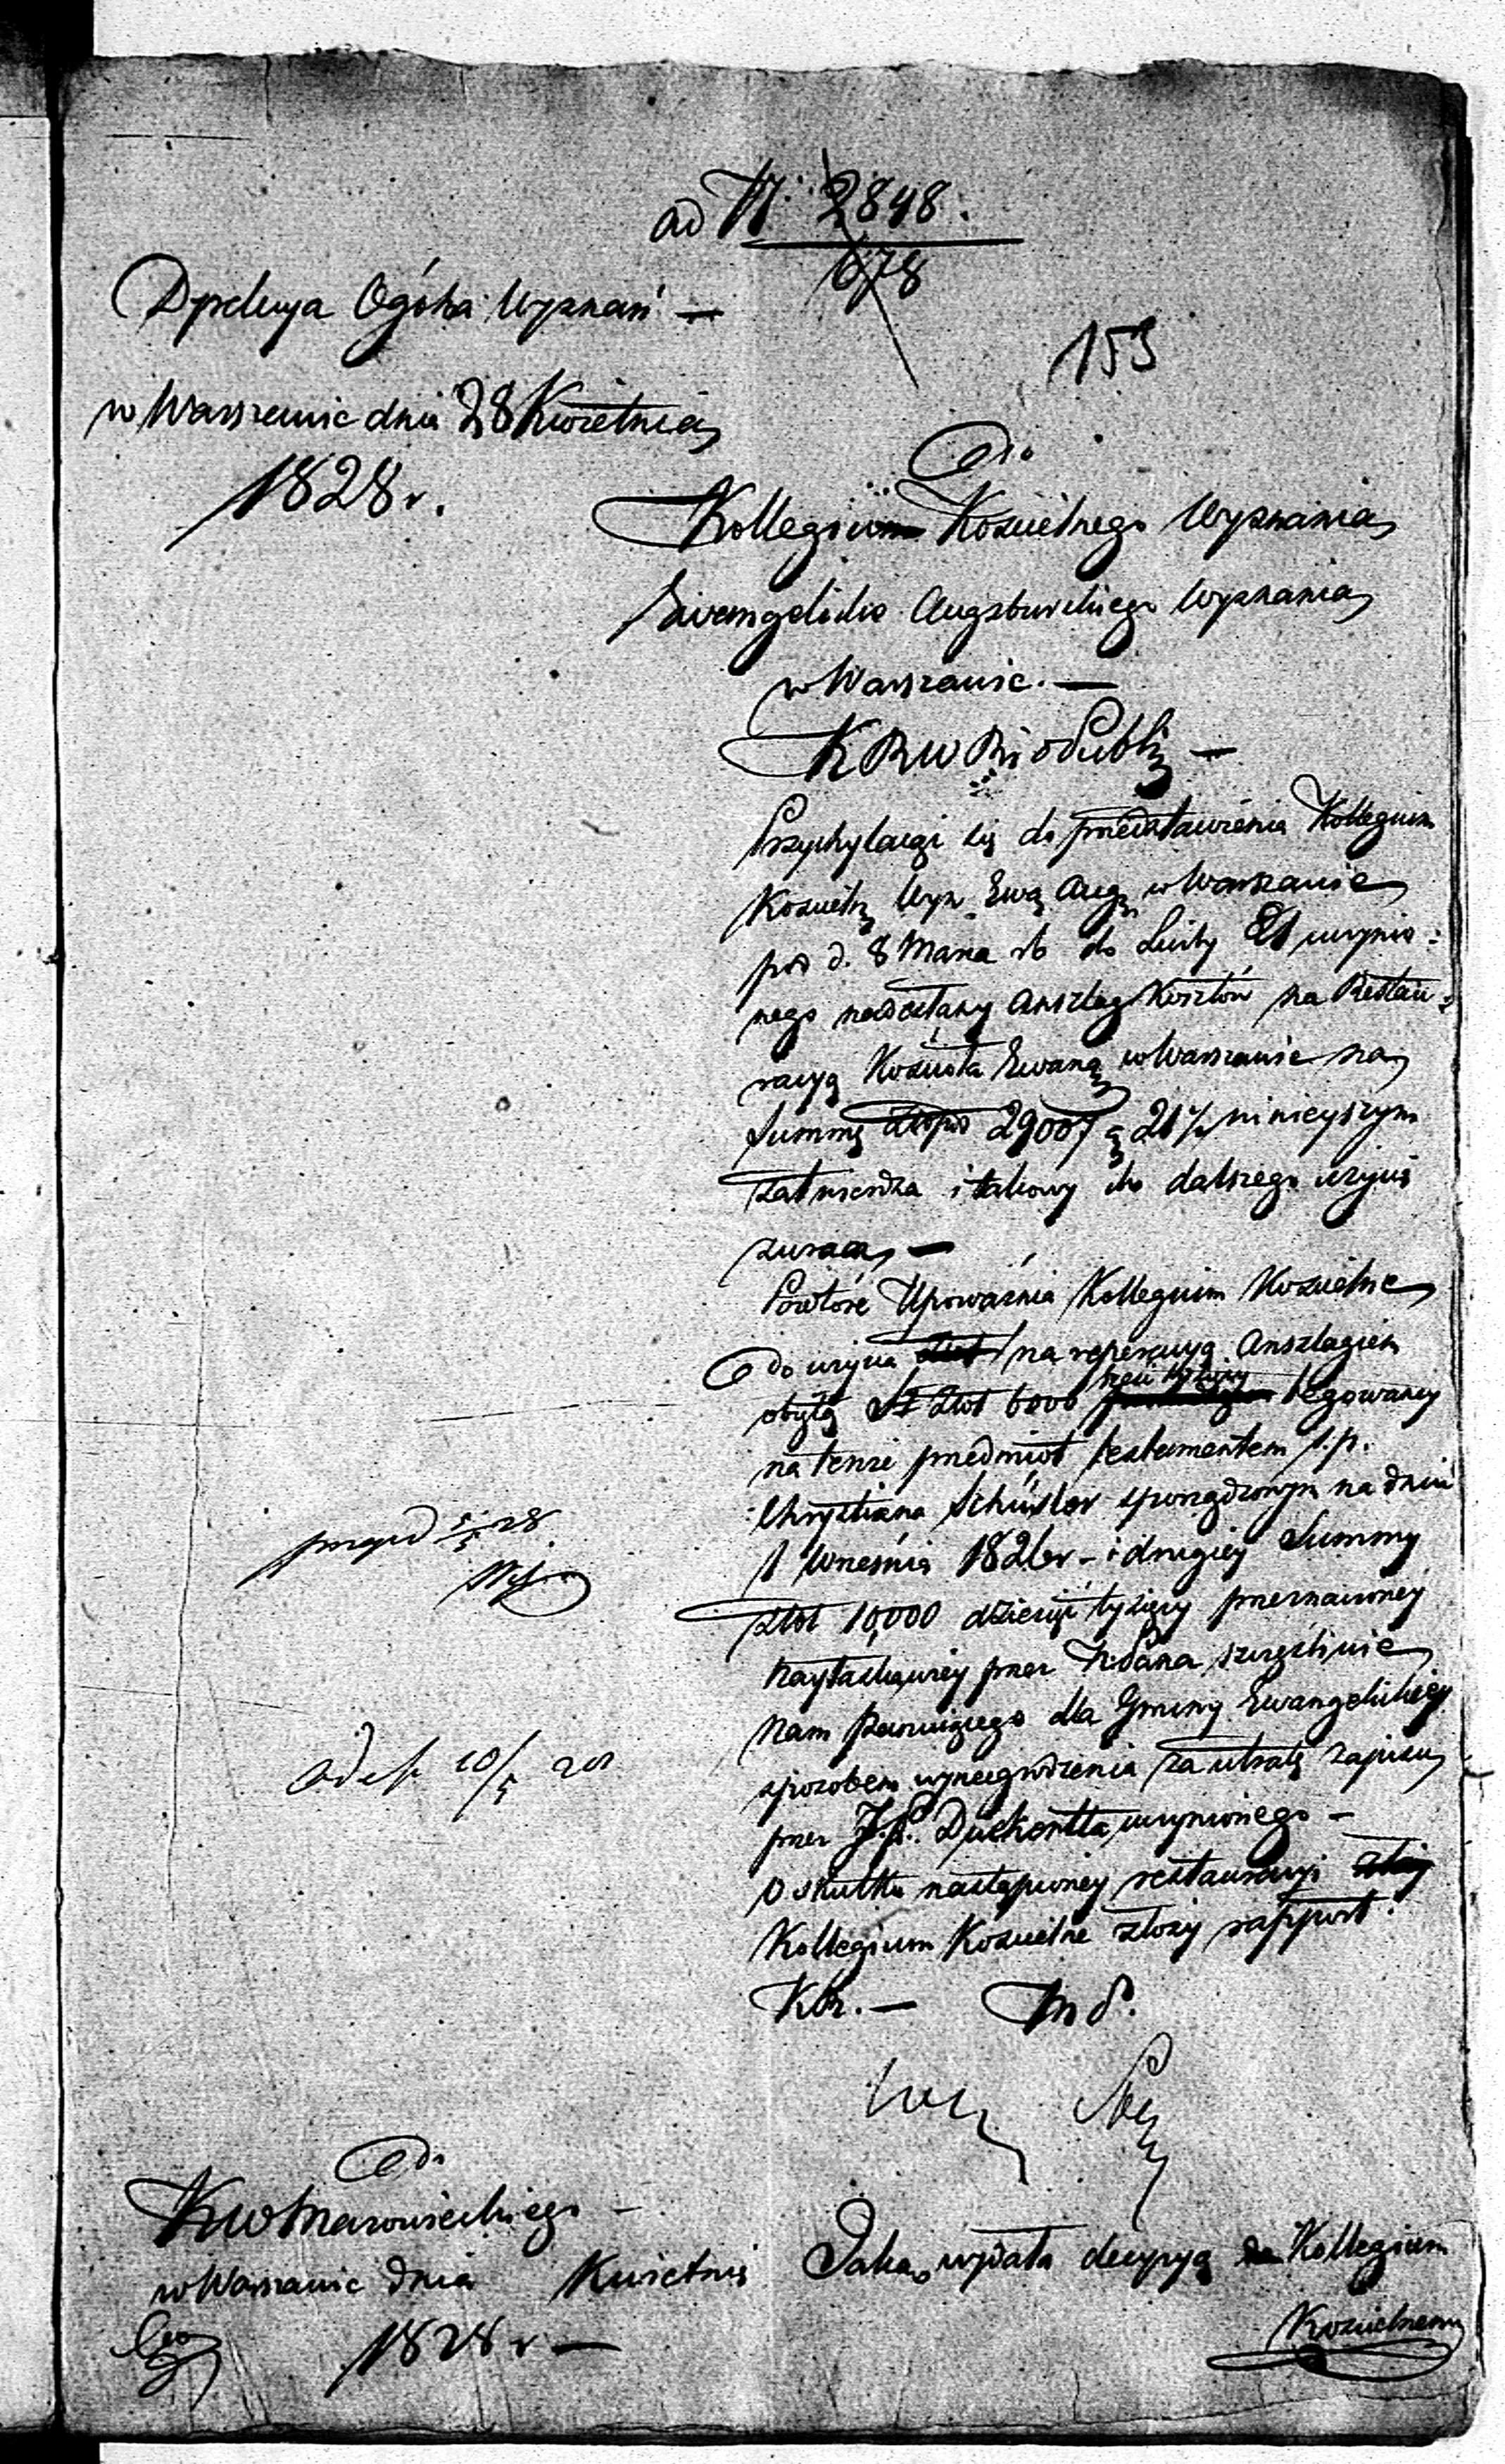 ad N. 2848.
678
Dyrekcya Ogólna Wyznań —
153
w Warszawie dnia 28 Kwietnia
1828 r.
Do
Kollegium Kościelnego Wyznania
Ewangelicko Augsburskiego Wyznania
w Warszawie. —
K R W R i O Publ —
Przychylając się do przedstawienia Kollegium
Kościel Wyzn Ewa Aug w Warszawie
pod d. 8 Marca rb do Liczby 21 uczynio:
nego nadesłany anszlag kosztów na Restau:
racyą Kościoła Ewang w Warszawie na
Summę Złotpo 29007 g 21 ninieyszym
zatwierdza i takowy do dalszego użycia
zwraca, —
Powtóre Upoważnia Kollegium Kościelne
do użycia na reperacyą Anszlagiem
objętą Złot 6000 sześć tysięcy legowaney
na tenże przedmiot testamentem ś.p.
Chrystiana Schuster sporządzonym na dniu
1 Września 1826 r – i drugiey Summy
złot 10,000 dziesięć tysięcy przeznaczoney
nayłaskawiey przez N. Pana szczęśliwie
nam panującego dla Gminy Ewangelickiey
sposobem wynagrodzenia za utratę zapisu
przez J.P. Duckertta uczynionego –
O skutku nastąpioney restauracyi
Kollegium Kościelne złoży rapport.
28
10/5 28
Do
K W Mazowieckiego –
w Warszawie dnia Kwietnia
1828 r —
Jaką wydała decyzyą Kollegium
Kościelnemu